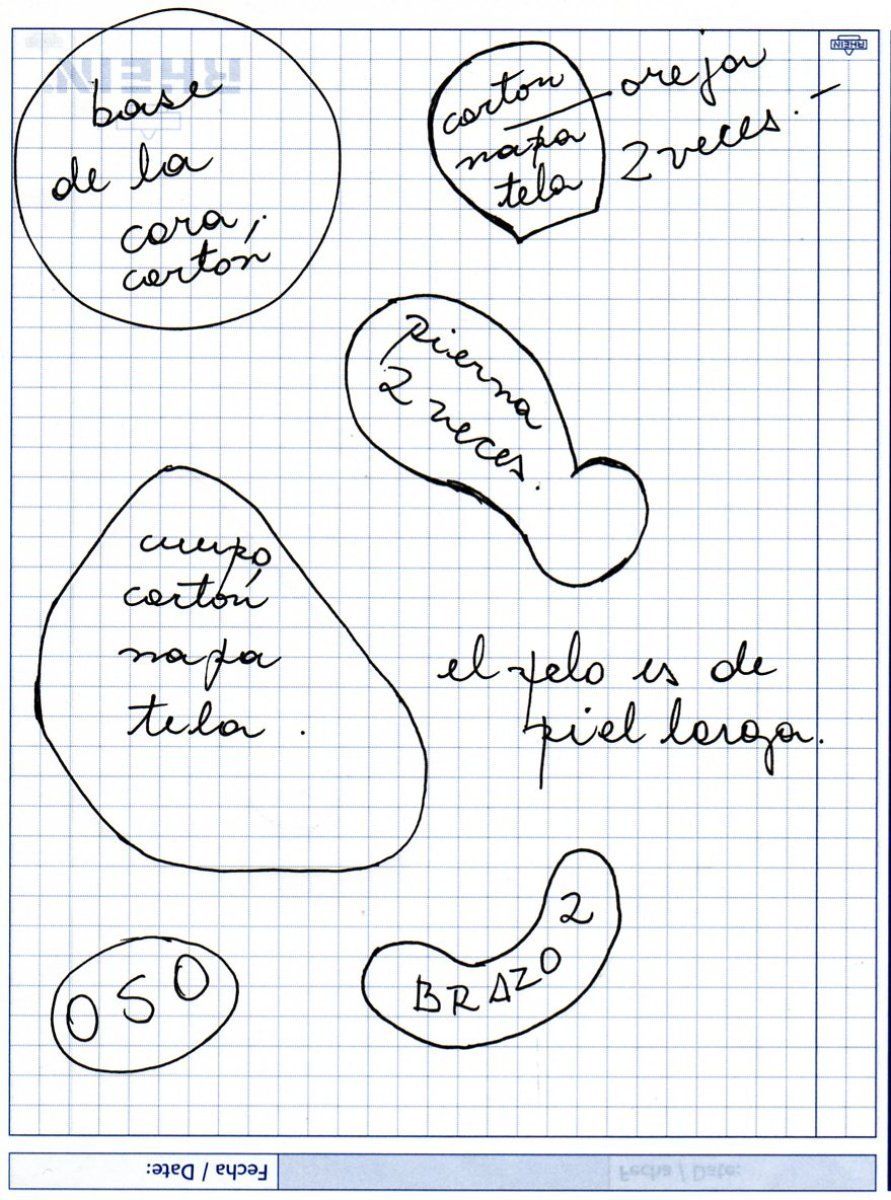 RHEIN
RHEIN
base
de la
cara,
cartón
carton
napa
tela
oreja
2 veces.-
pierna
2 veces.
cuerpo,
cartón
napa
tela.
el pelo es de
piel larga.
OSO
BRAZO 2
Fecha / Date:
Fecha / Date: